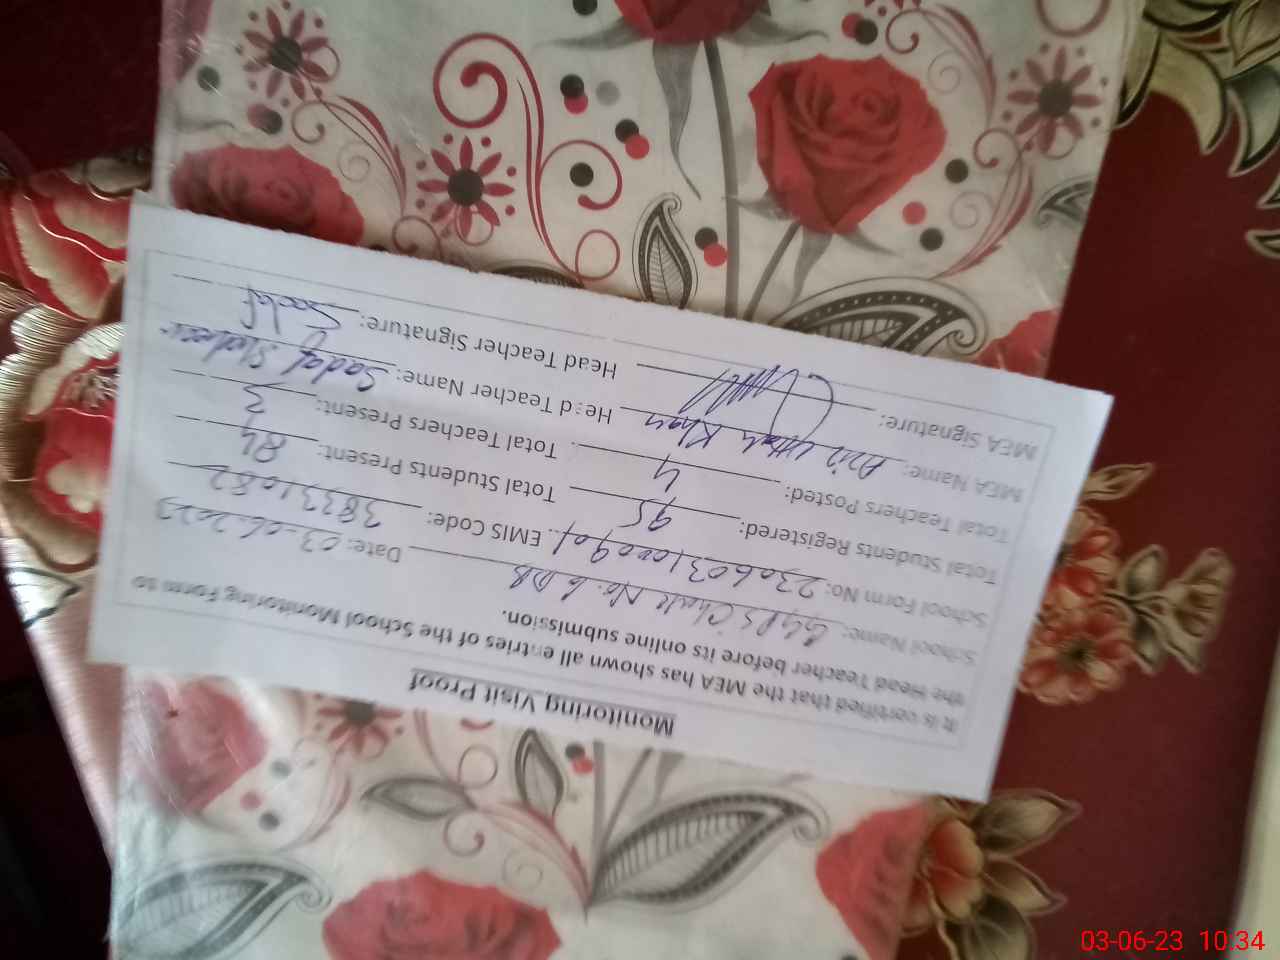 Monitoring Visit Proof
It is certified that the MEA has shown all entries of the School Monitoring Form to
the Head Teacher before its online submission.
School Name: GGPS Chak No. 6 DB Date: 03-06-2023
School Form No: 2306031000901 EMIS Code: 38331082
Total Students Registered: 95 Total Students Present: 84
Total Teachers Posted: 4 Total Teachers Present: 3
MEA Name: Khan Head Teacher Name: Sadaf
MEA Signature: Head Teacher Signature: Sadaf
03-06-23 10.34